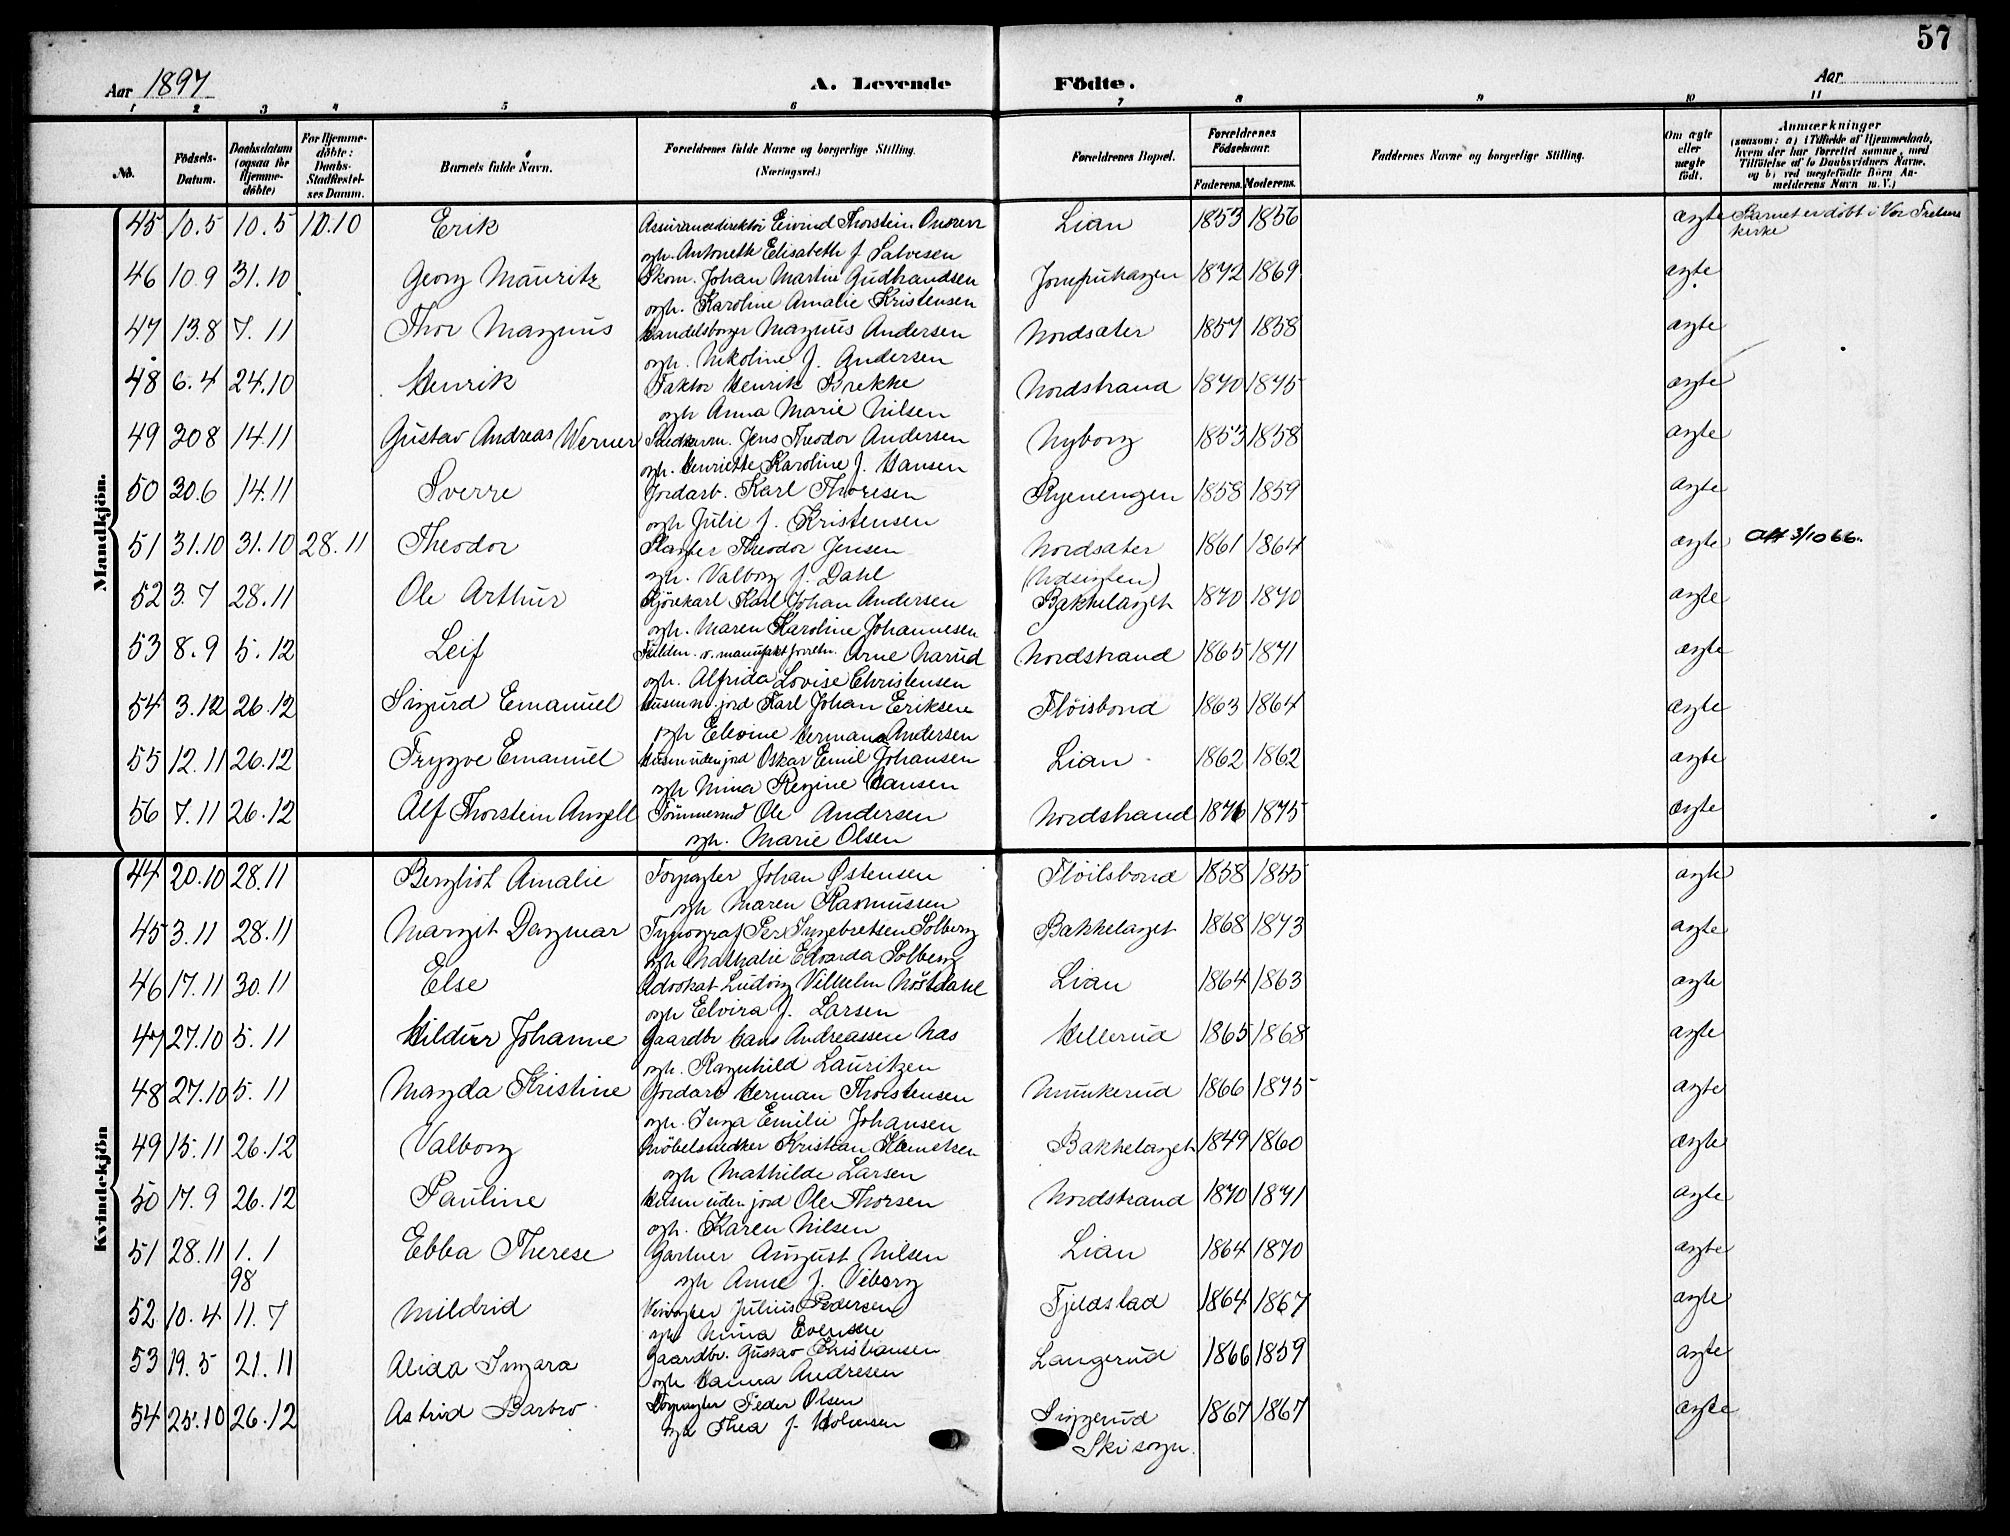 57
Aar 1897 A. Levende Födte. Aar
1 2 3 4 5 6 7 8 9 10 11
No. Födsels-Datum. Daabsdatum (ogsaa for Hjemme-döbte) For Hjemme-döbte: Daabs-Stadfæstel-ses Datum. Barnets fulde Navn. Forældrenes fulde Navne og borgerlige Stilling. (Næringsvei.) Forældrenes Bopæl. Forældrenes Födselsaar. Faderens. Moderens. Faddernes Navne og borgerlige Stilling. Om ægte eller uægte født. Anmærkninger (saasom: a) i Tilfælde af Hjemmedaab, hvem der har forrettet samme, med Tilföielse af to Daabsvidners Navne. og b) ved uægtefödte Börn An-melderens Navn m. V.)
Mandkjön.
45 10.5 10.5 10.10 Erik Assurancedirektør Eivind Thorstein Lian 1853 1856 ægte Barnet er døbt i Vor Frelsers
kirke
ogh. Antonette Elisabeth f Salvesen
46 10.9 31.10 Georg Mauritz Skom. Johan Martin Gudbrandsen Jomfruhagen 1872 1869 ægte
ogh. Karoline Amalie Kristensen
47 13.8 7.11 Thor Magnus Handelsborger Magnus Andersen Nordsæter 1857 1858 ægte
ogh. Nikoline f. Andersen
48 6.4 24.10 Henrik Faktor Henrik Brekke Nordstrand 1870 1875 ægte
ogh Anna Marie Nilsen
49 20 8 14.11 Gustav Andreas Werner Snedkerm. Jens Theodor Andersen Nyborg 1853 1858 ægte
ogh. Henriette Karoline f. Hansen
50 20.6 14.11 Sverre Jordarb. Karl Thoresen Ryenengen 1858 1859 ægte
ogh Julie f. Kristensen
51 31.10 31.10 28.11 Theodor Slagter Theodor Jensen Nordsæter 1861 1864 ægte Att 3/10 66.
ogh. Valborg f. Dahl (Udsigten)
52 3.7 28.11 Ole Arthur Kjørekarl Karl Johan Andersen Bækkelaget 1870 1870 ægte
ogh. Maren Karoline Johannesen
53 8.9 5.12 Leif Fuldm. v. manufaktforretn. Arne Narud Nordstrand 1865 1871 ægte
ogh. Alfrida Lovise Christensen
54 3.12 26.12 Sigurd Emanuel Husm m. jord Karl Johan Eriksen Fløisbond 1863 1864 ægte
ogh Elevine Hermana Andersen
55 12.11 26.12 Trygve Emanuel Husm uden jord Oskar Emil Johansen Lian 1862 1862 ægte
ogh Nina Regine Hansen
56 7.11 26.12 Alf Thorstein Angell Tömmermd Ole Andersen Nordstrand 1876 1875 ægte
ogh. Marie Olsen
Kvindekjön
44 20.10 28.11 Bergliot Amalie Forpagter Johan Østensen Fløilsbond 1858 1855 ægte
ogh Maren Rasmussen
45 3.11 28.11 Margit Dagmar Typograf Per Ingebretsen Solberg Bækkelaget 1868 1873 ægte
ogh Nathalie Edvarda Solberg
46 17.11 30.11 Else Advokat Ludvig Vilhelm Nöstdahl Lian 1864 1863 ægte
ogh Elvira f. Larsen
47 27.10 5.11 Hildur Johanne Gaardbr Hans Andreassen Næs Hellerud 1865 1868 ægte
ogh. Ragnhild Lauritzen
48 27.10 5.11 Magda Kristine Jordarb Herman Thorstensen Munkerud 1866 1875 ægte
ogh. Inga Emilie Johansen
49 15.11 26.12 Valborg Möbelsnedker Kristian Bækkelaget 1849 1860 ægte
ogh Mathilde Larsen
50 17.9 26.12 Pauline Husm uden jord Ole Thorsen Nordstrand 1870 1871 ægte
ogh. Karen Nilsen
51 28.11 1.1 Ebba Therese Gartner August Nilsen Lian 1864 1870 ægte
98 ogh Anne f. Viborg
52 10.4 11.7 Mildrid Forpagter Julius Pedersen Fjeldstad 1864 1867 ægte
ogh Nina Evensen
53 19.5 21.11 Alida Ingara Gaardbr. Gustav Kristiansen Langerud 1866 1859 ægte
ogh Hanna Andresen
54 25.10 26.12 Astrid Barbro Forpagter Peder Olsen Siggerud 1867 1867 ægte
ogh Thea f. Halvorsen Ski sogn.